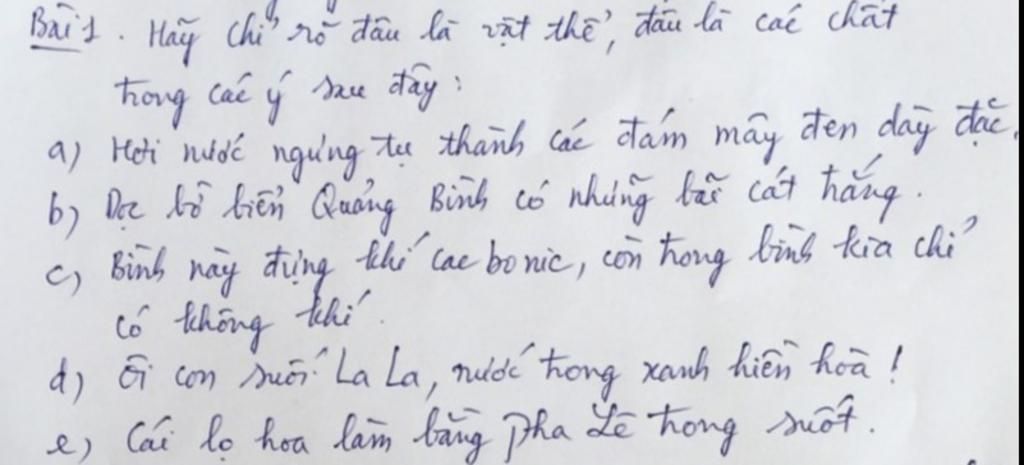 Bài 1. Hãy chỉ rõ đâu là vật thể, đâu là các chất
trong các ý sau đây:
a) Hơi nước ngưng tụ thành các đám mây đen dày đặc.
b) Dọc bờ biển Quảng Bình có những bãi cát trắng.
c) Bình này đựng khí cacbonic, còn trong bình kia chỉ
có không khí.
d) Ôi con suối La La, nước trong xanh hiền hoà!
e) Cái lọ hoa làm bằng pha lê trong suốt.